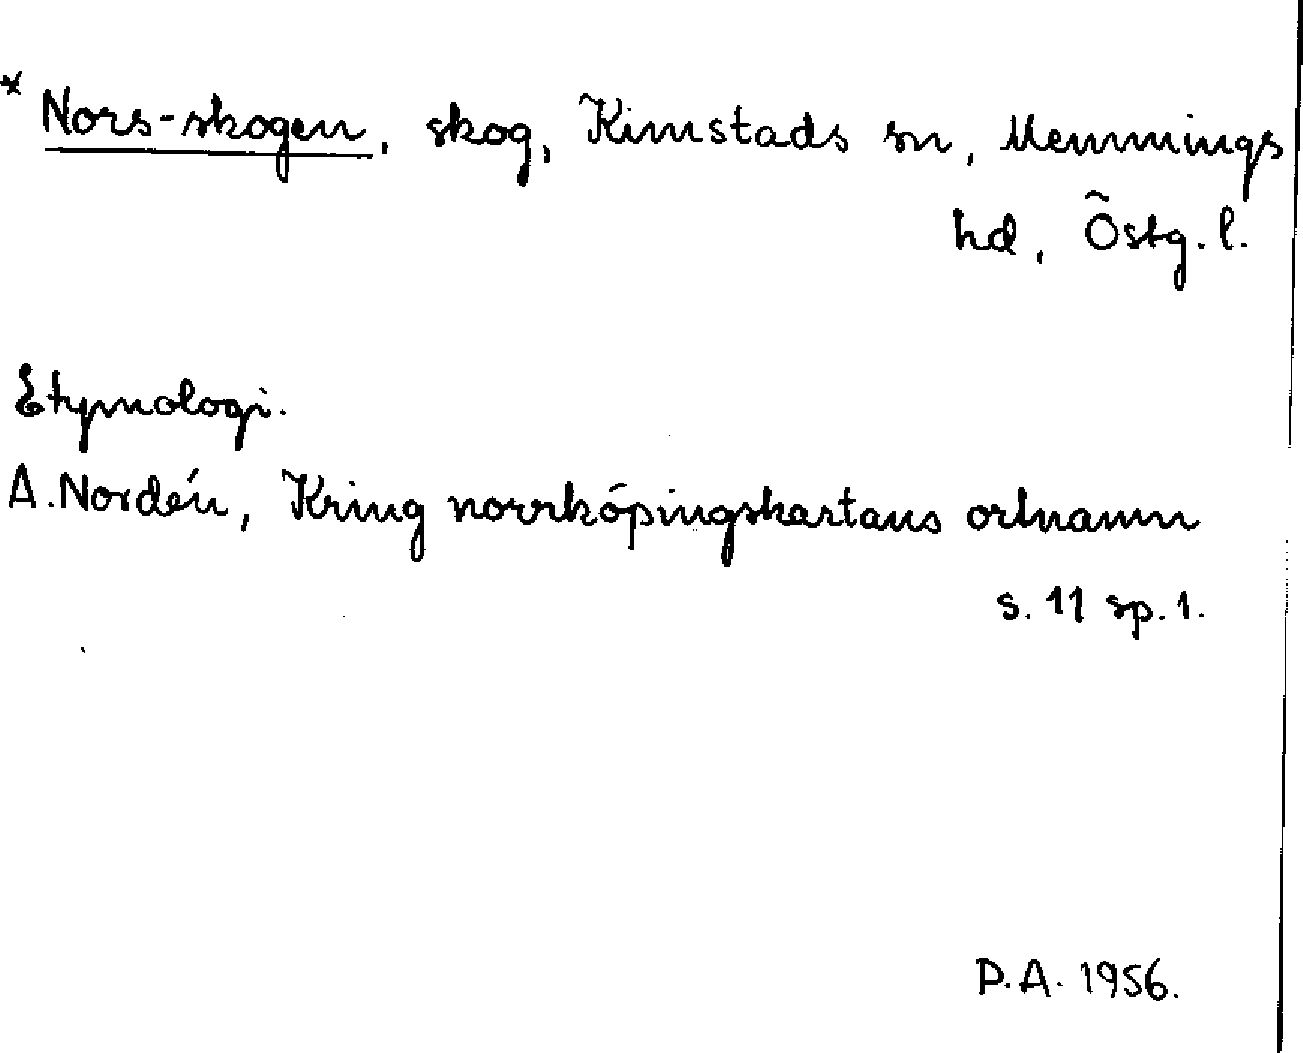 * Nors-skogen, skog, Kimstads sn, Memmings
hd, Östg. l.
Etymologi.
A. Nordén, Kring norrköpingskartans ortnamn
s. 11 sp. 1.
P.A. 1956.